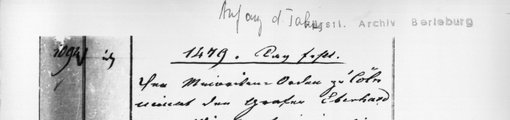 Anfang d. Jahres
Fürstl. Archiv Berleburg
1479. Tag fehlt.
Der Minoriten Orden zu Cöln
nimmt den Grafen Eberhard